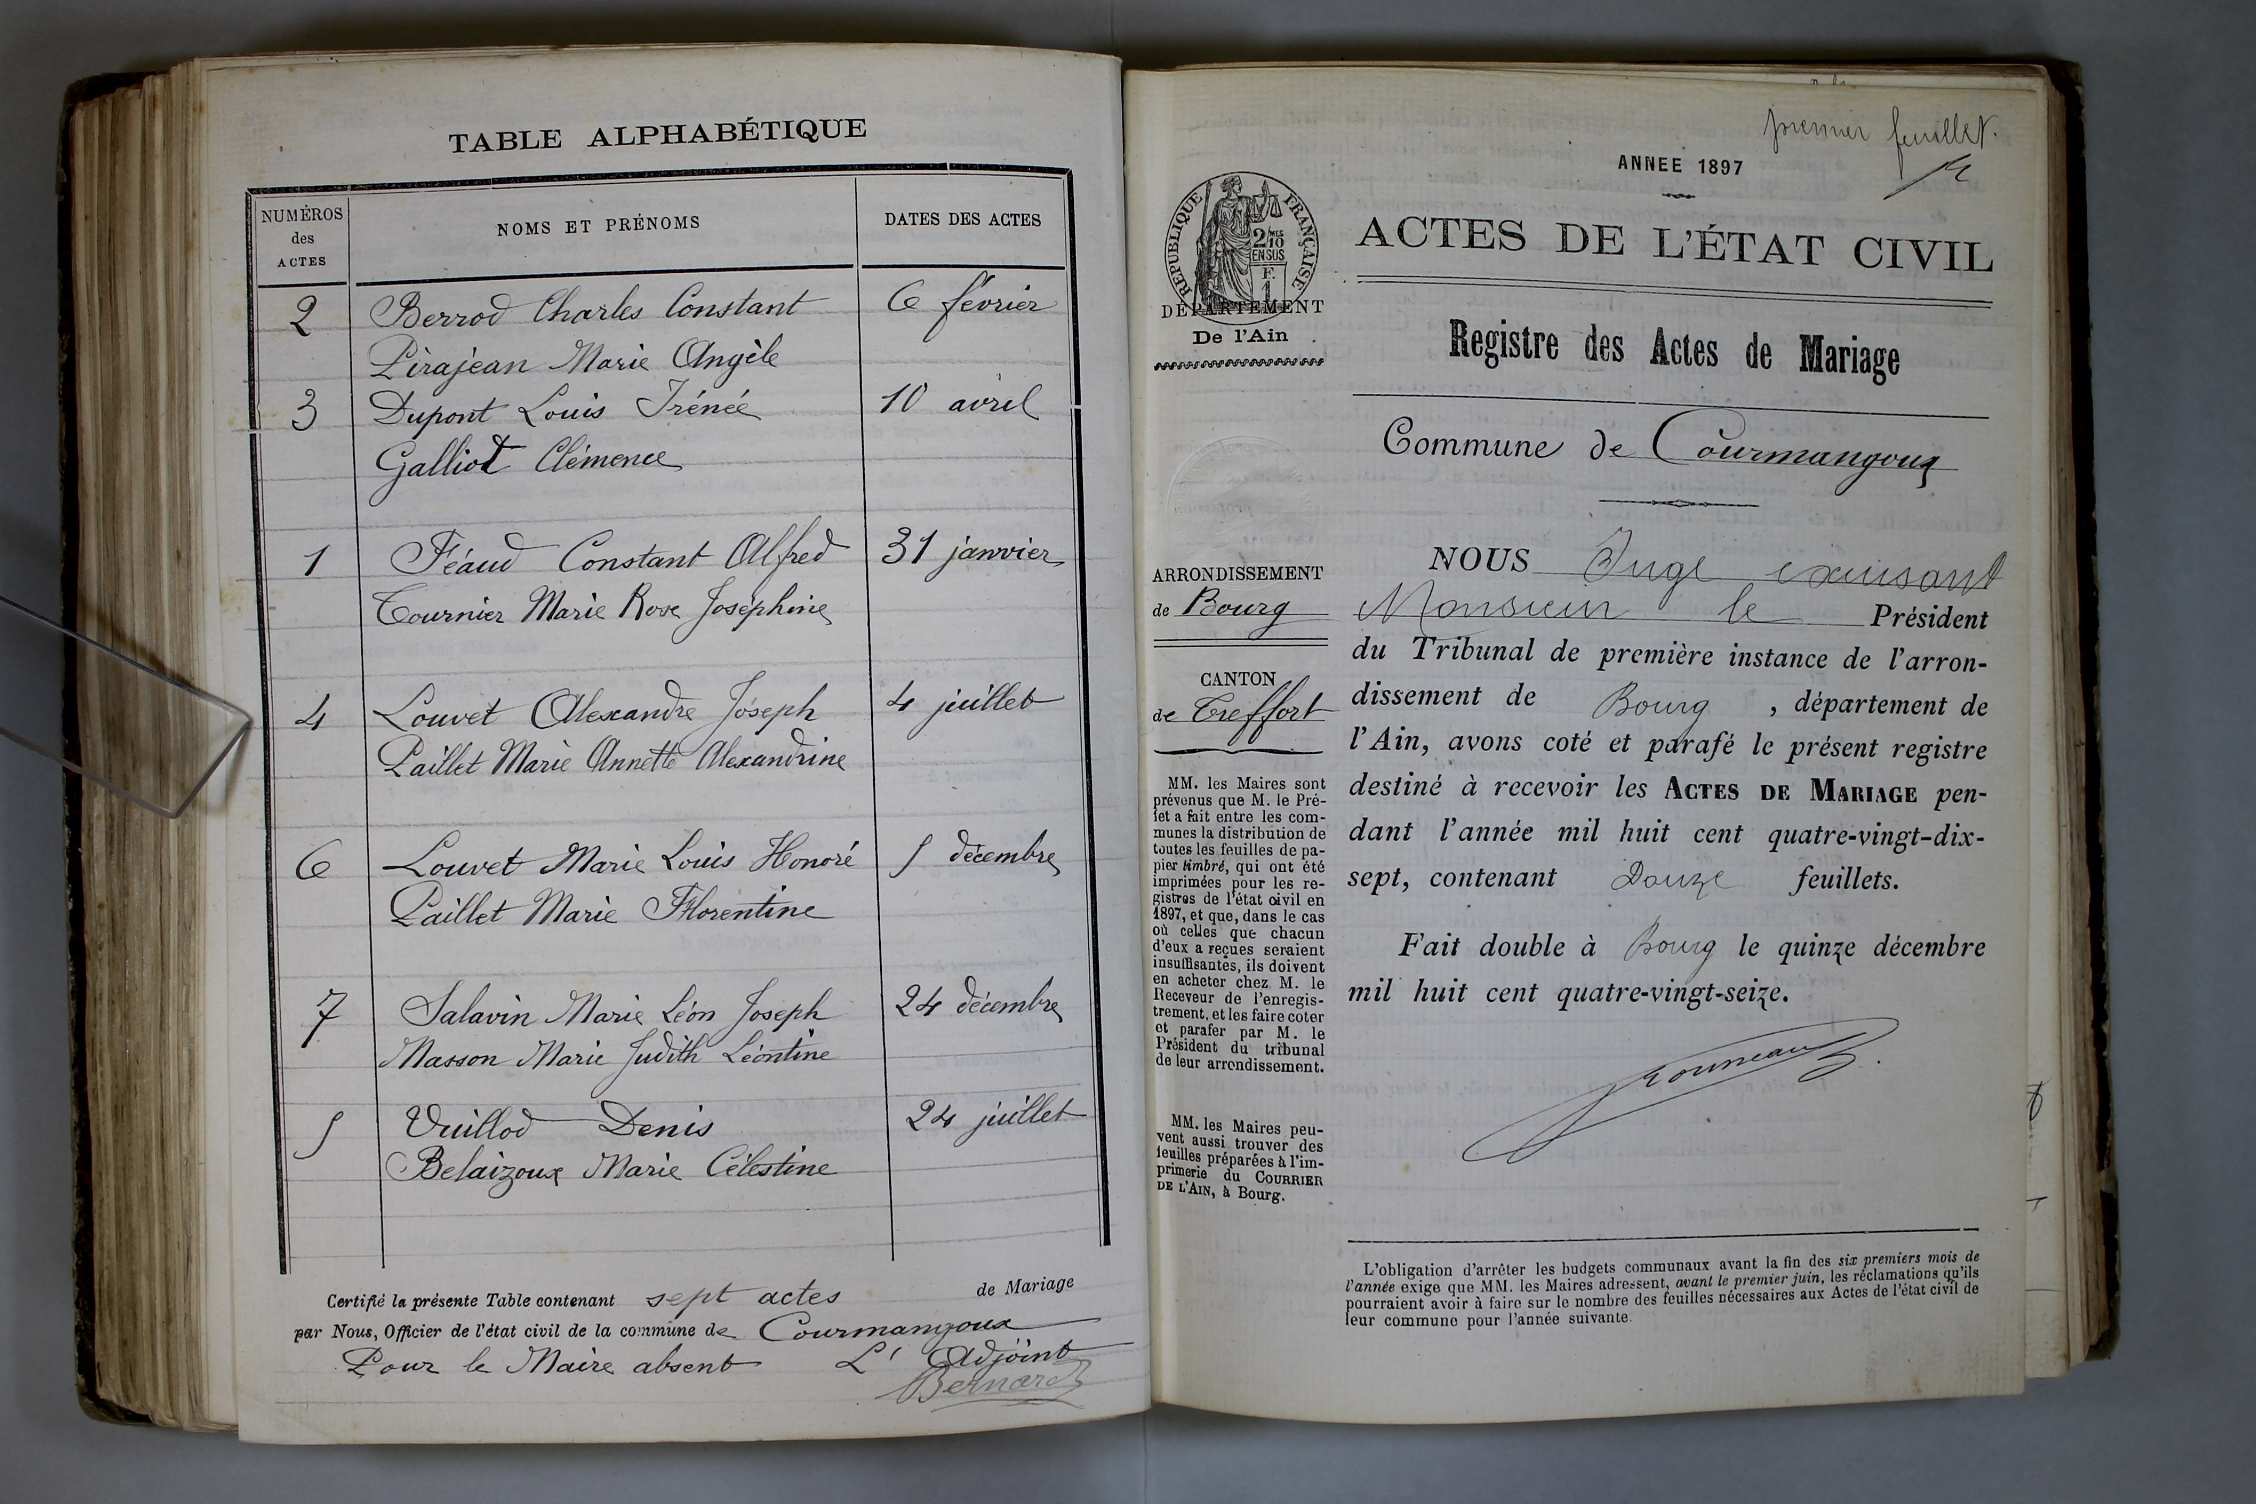 TABLE ALPHABÉTIQUE
NUMÉROS
des
ACTES
NOMS ET PRÉNOMS
DATES DES ACTES
2 Berrod Charles Constant 6 février
Pirajean Marie Angèle
3 Dupont Louis Irénée 10 avril
Galliot Clémence
1 Féaud Constant Alfred 31 janvier
Tournier Marie Rose Joséphine
4 Louvet Alexandre Joseph 4 juillet
Paillet Marie Annette Alexandrine
6 Louvet Marie Louis Honoré 5 décembre
Paillet Marie Florentine
7 Salavin Marie Léon Joseph 24 décembre
Masson Marie Judith Léontine
5 Vuillod Denis 24 juillet
Belaizoux Marie Célestine
Certifié la présente Table contenant sept actes de Mariage
par Nous, Officier de l'état civil de la commune de Courmangoux
Pour le Maire absent L'Adjoint
Bernard
premier feuillet.
ANNEE 1897
RÉPUBLIQUE FRANÇAISE
2/10
EN SUS
F.
1
DÉPARTEMENT
De l'Ain
ARRONDISSEMENT
de Bourg
CANTON
de Treffort
MM. les Maires sont
prévenus que M. le Pré-
fet a fait entre les com-
munes la distribution de
toutes les feuilles de pa-
pier timbré, qui ont été
imprimées pour les re-
gistres de l'état civil en
1897, et que, dans le cas
où celles que chacun
d'eux a reçues seraient
insuffisantes, ils doivent
en acheter chez M. le
Receveur de l'enregis-
trement, et les faire coter
et parafer par M. le
Président du tribunal
de leur arrondissement.
MM. les Maires peu-
vent aussi trouver des
feuilles préparées à l'im-
primerie du COURRIER
DE L'AIN, à Bourg.
ACTES DE L'ÉTAT CIVIL
Registre des Actes de Mariage
Commune de Courmangoux
NOUS Juge excusant
Monsieur le Président
du Tribunal de première instance de l'arron-
dissement de Bourg, département de
l'Ain, avons coté et parafé le présent registre
destiné à recevoir les ACTES DE MARIAGE pen-
dant l'année mil huit cent quatre-vingt-dix-
sept, contenant Douze feuillets.
Fait double à Bourg le quinze décembre
mil huit cent quatre-vingt-seize.
L'obligation d'arrêter les budgets communaux avant la fin des six premiers mois de
l'année exige que MM. les Maires adressent, avant le premier juin, les réclamations qu'ils
pourraient avoir à faire sur le nombre des feuilles nécessaires aux Actes de l'état civil de
leur commune pour l'année suivante.